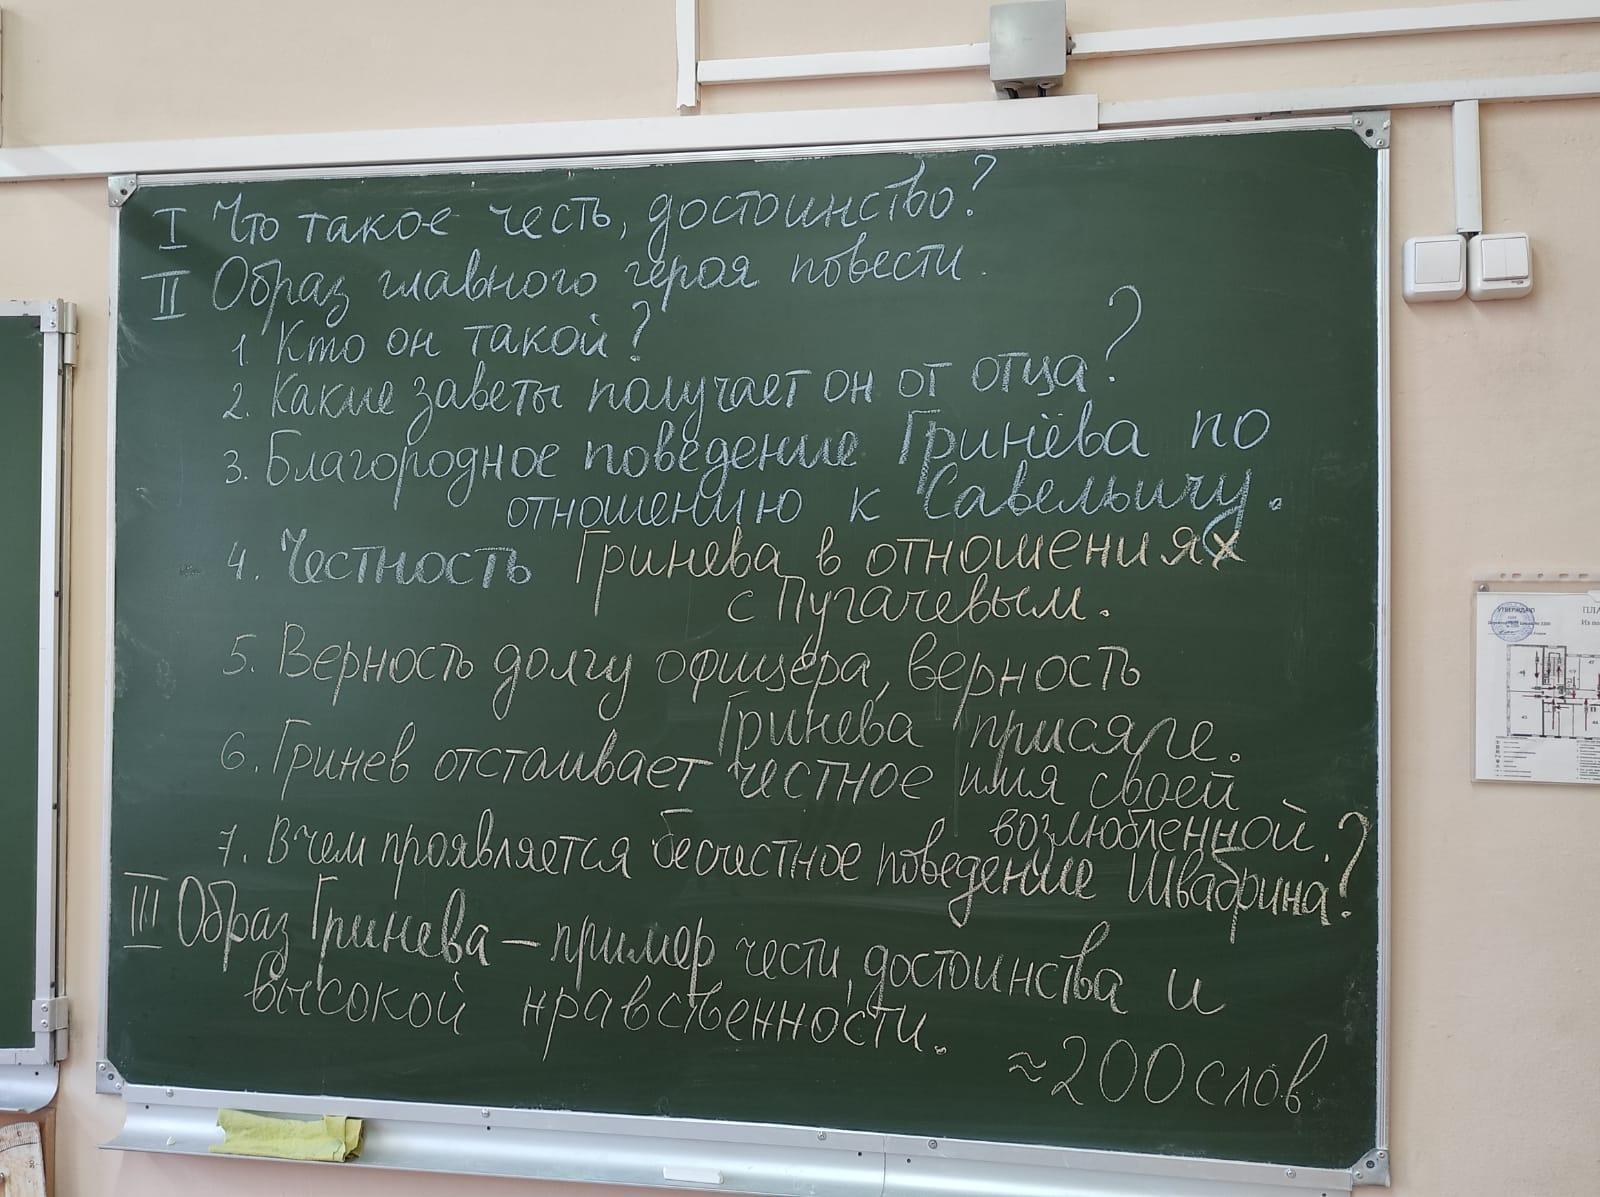 I Что такое честь, достоинство?
II Образ главного героя повести.
1. Кто он такой?
2. Какие заветы получает он от отца?
3. Благородное поведение Гринёва по
отношению к Савельичу.
4. Честность Гринева в отношениях
с Пугачевым.
5. Верность долгу офицера, верность
Гринева присяге.
6. Гринев отстаивает честное имя своей
возлюбленной.
7. В чем проявляется бесчестное поведение Швабрина?
III Образ Гринева – пример чести, достоинства и
высокой нравственности.
≈200 слов
УТВЕРЖДАЮ
ПЛА
Из по